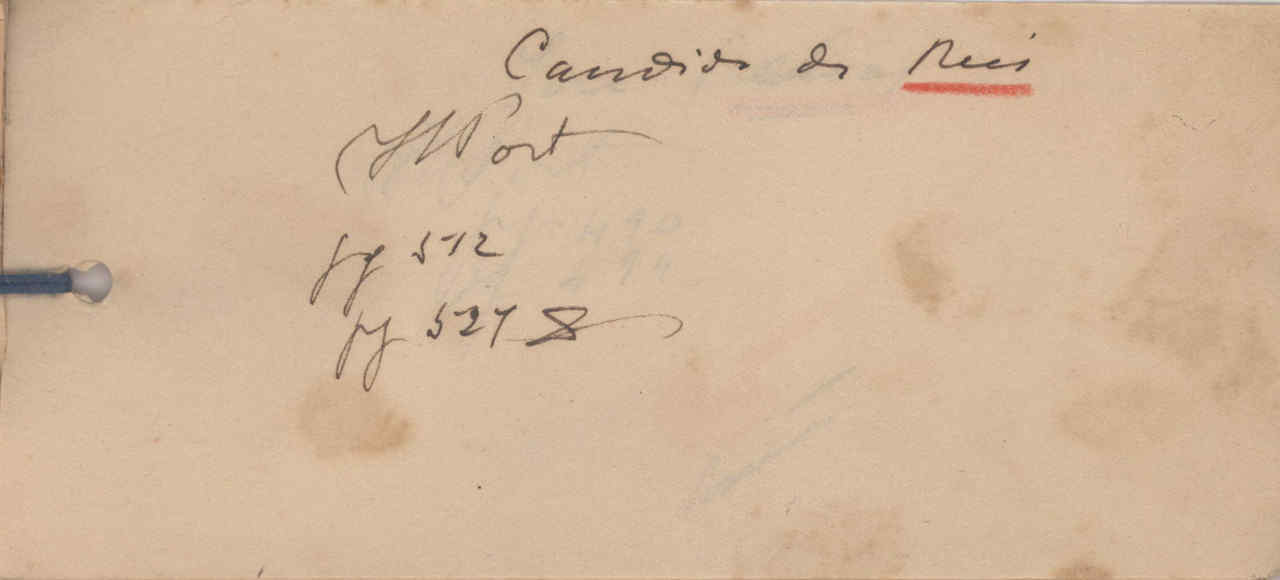 Candido de Reis
Il Port
pg 512
pg 527